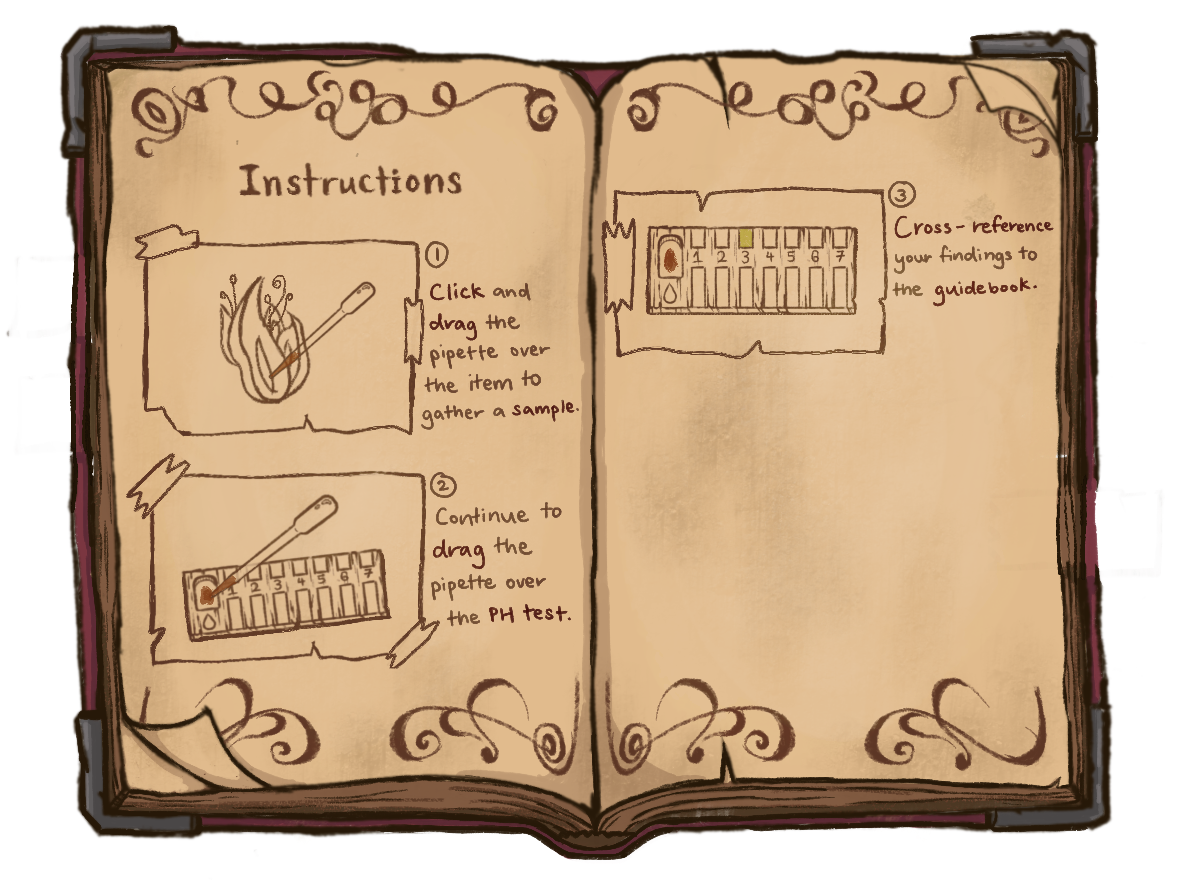 Instructions
①
Click and
drag the
pipette over
the item to
gather a sample.
②
Continue to
drag the
pipette over
the PH test.
1 2 3 4 5 6 7
③
Cross-reference
your findings to
the guidebook.
1 2 3 4 5 6 7